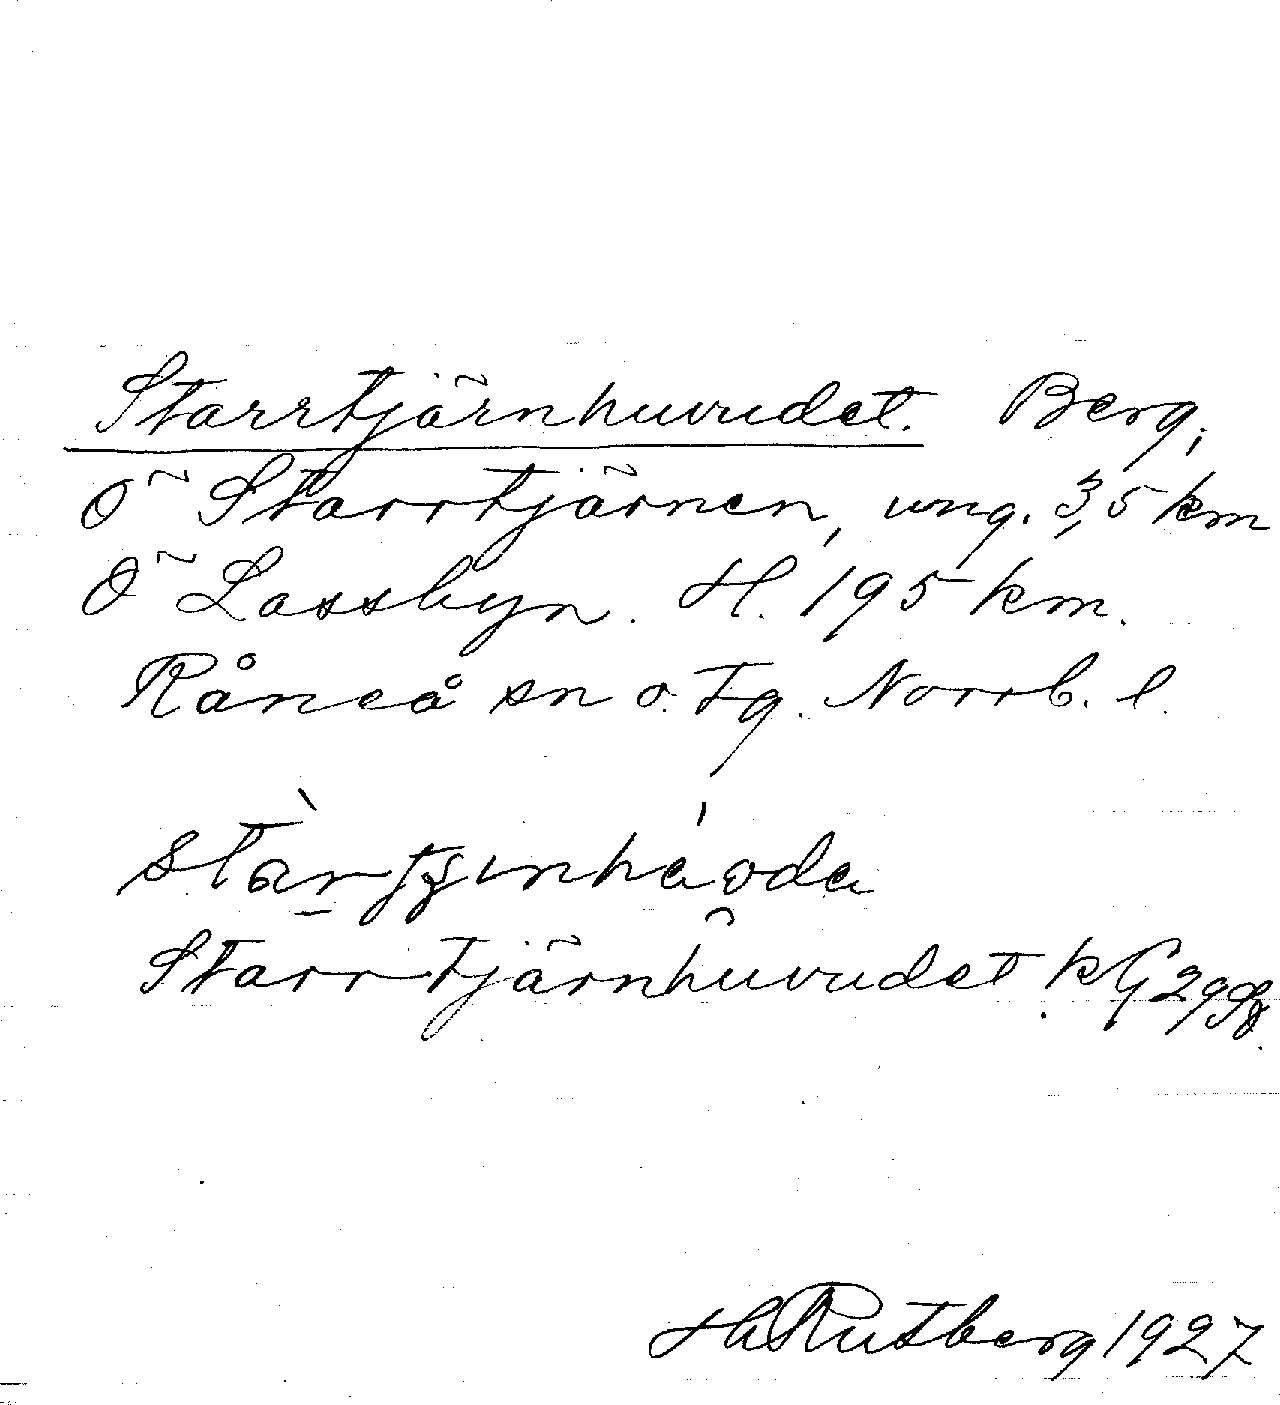 Starrtjärnhuvudet. Berg,
Ö Starrtjärnen, ung. 3,5 km
Ö Lassbyn. H. 195 km.
Råneå sn o. tg. Norrb. l.
Starrtjärnhuvudet kG 29
Hl Rutberg 1927